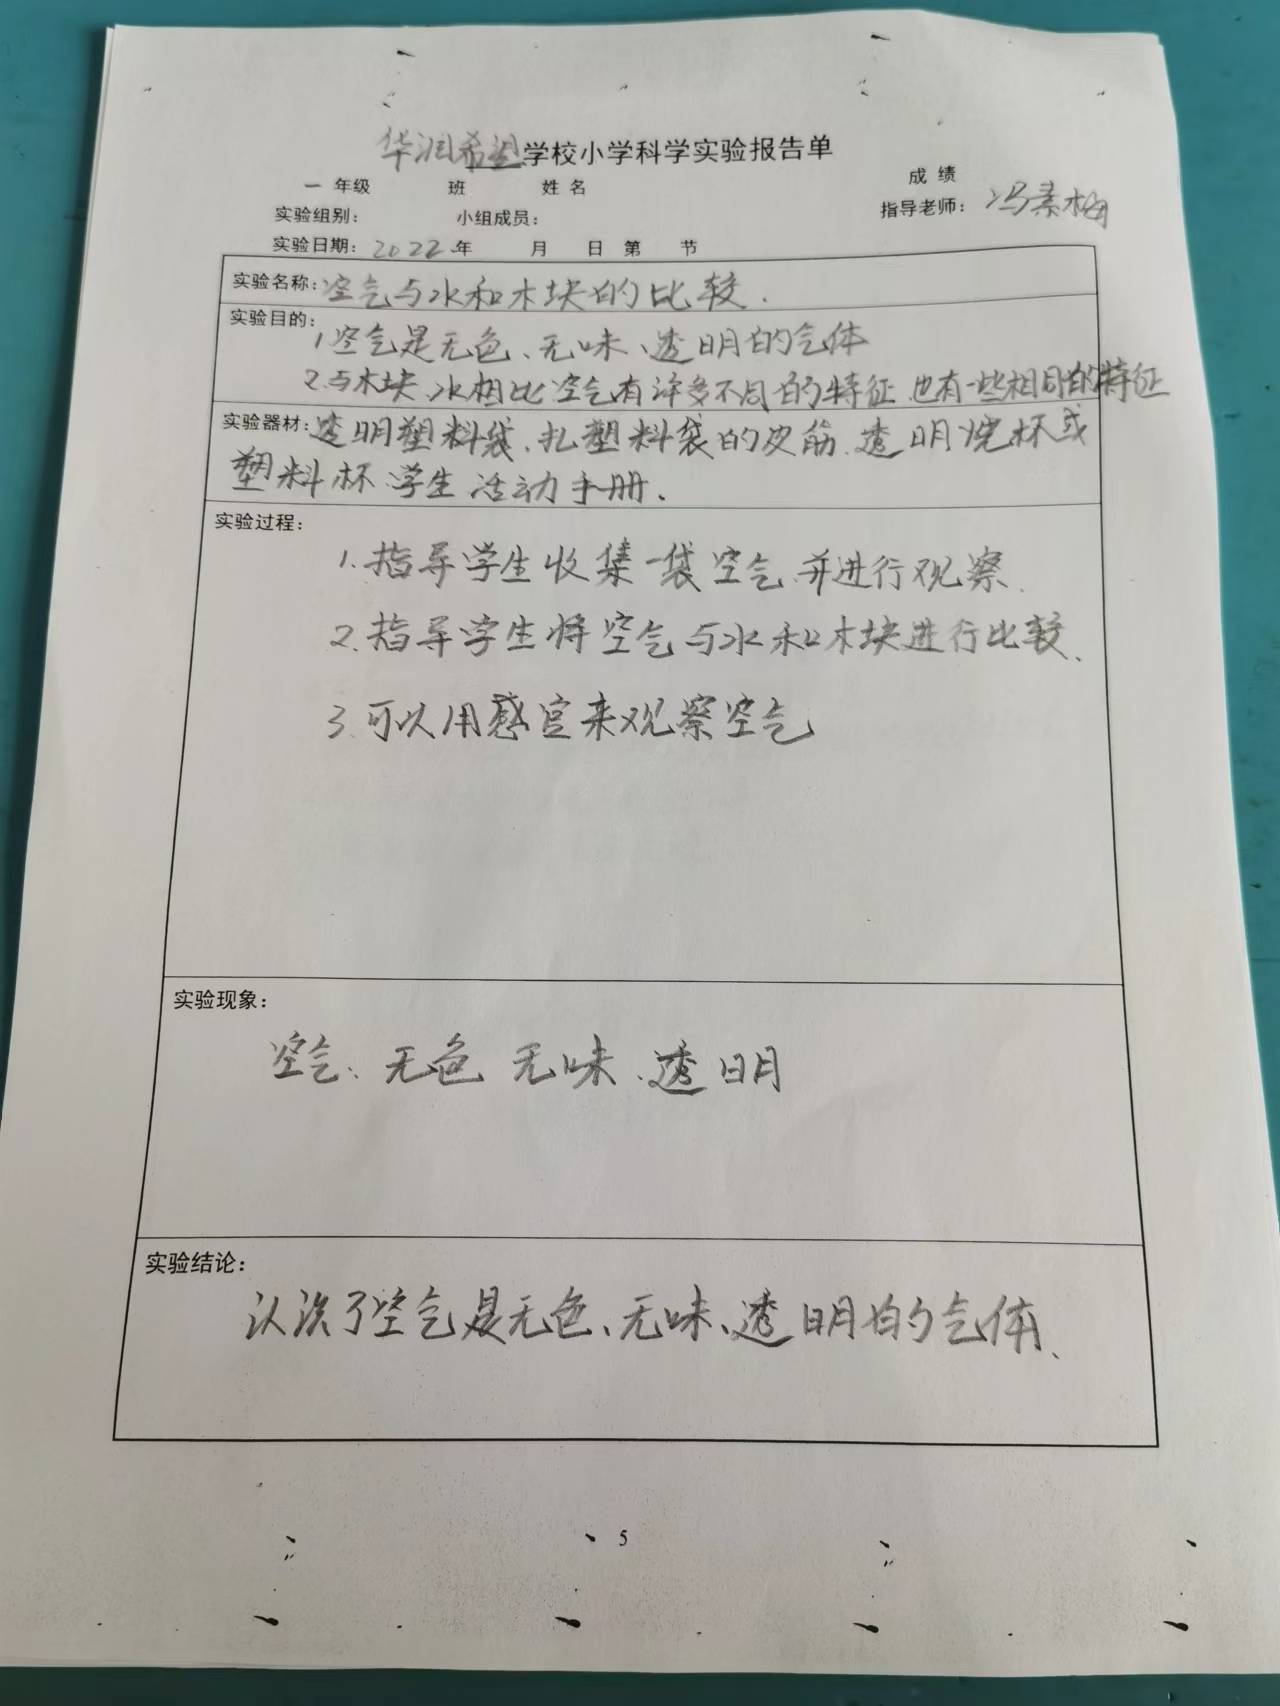 华润希望学校小学科学实验报告单
一 年级 班 姓名 成绩
实验组别： 小组成员： 指导老师：冯素梅
实验日期：2022年 月 日 第 节
实验名称：空气与水和木块的比较.
实验目的：
1空气是无色、无味、透明的气体
2.与木块、水相比空气有许多不同的特征.也有一些相同的特征
实验器材：透明塑料袋、扎塑料袋的皮筋.透明烧杯或
塑料杯.学生活动手册.
实验过程：
1.指导学生收集一袋空气.并进行观察.
2.指导学生将空气与水和木块进行比较、
3.可以用感官来观察空气
实验现象：
空气：无色 无味.透明
实验结论：
认识了空气是无色、无味、透明的气体、
5